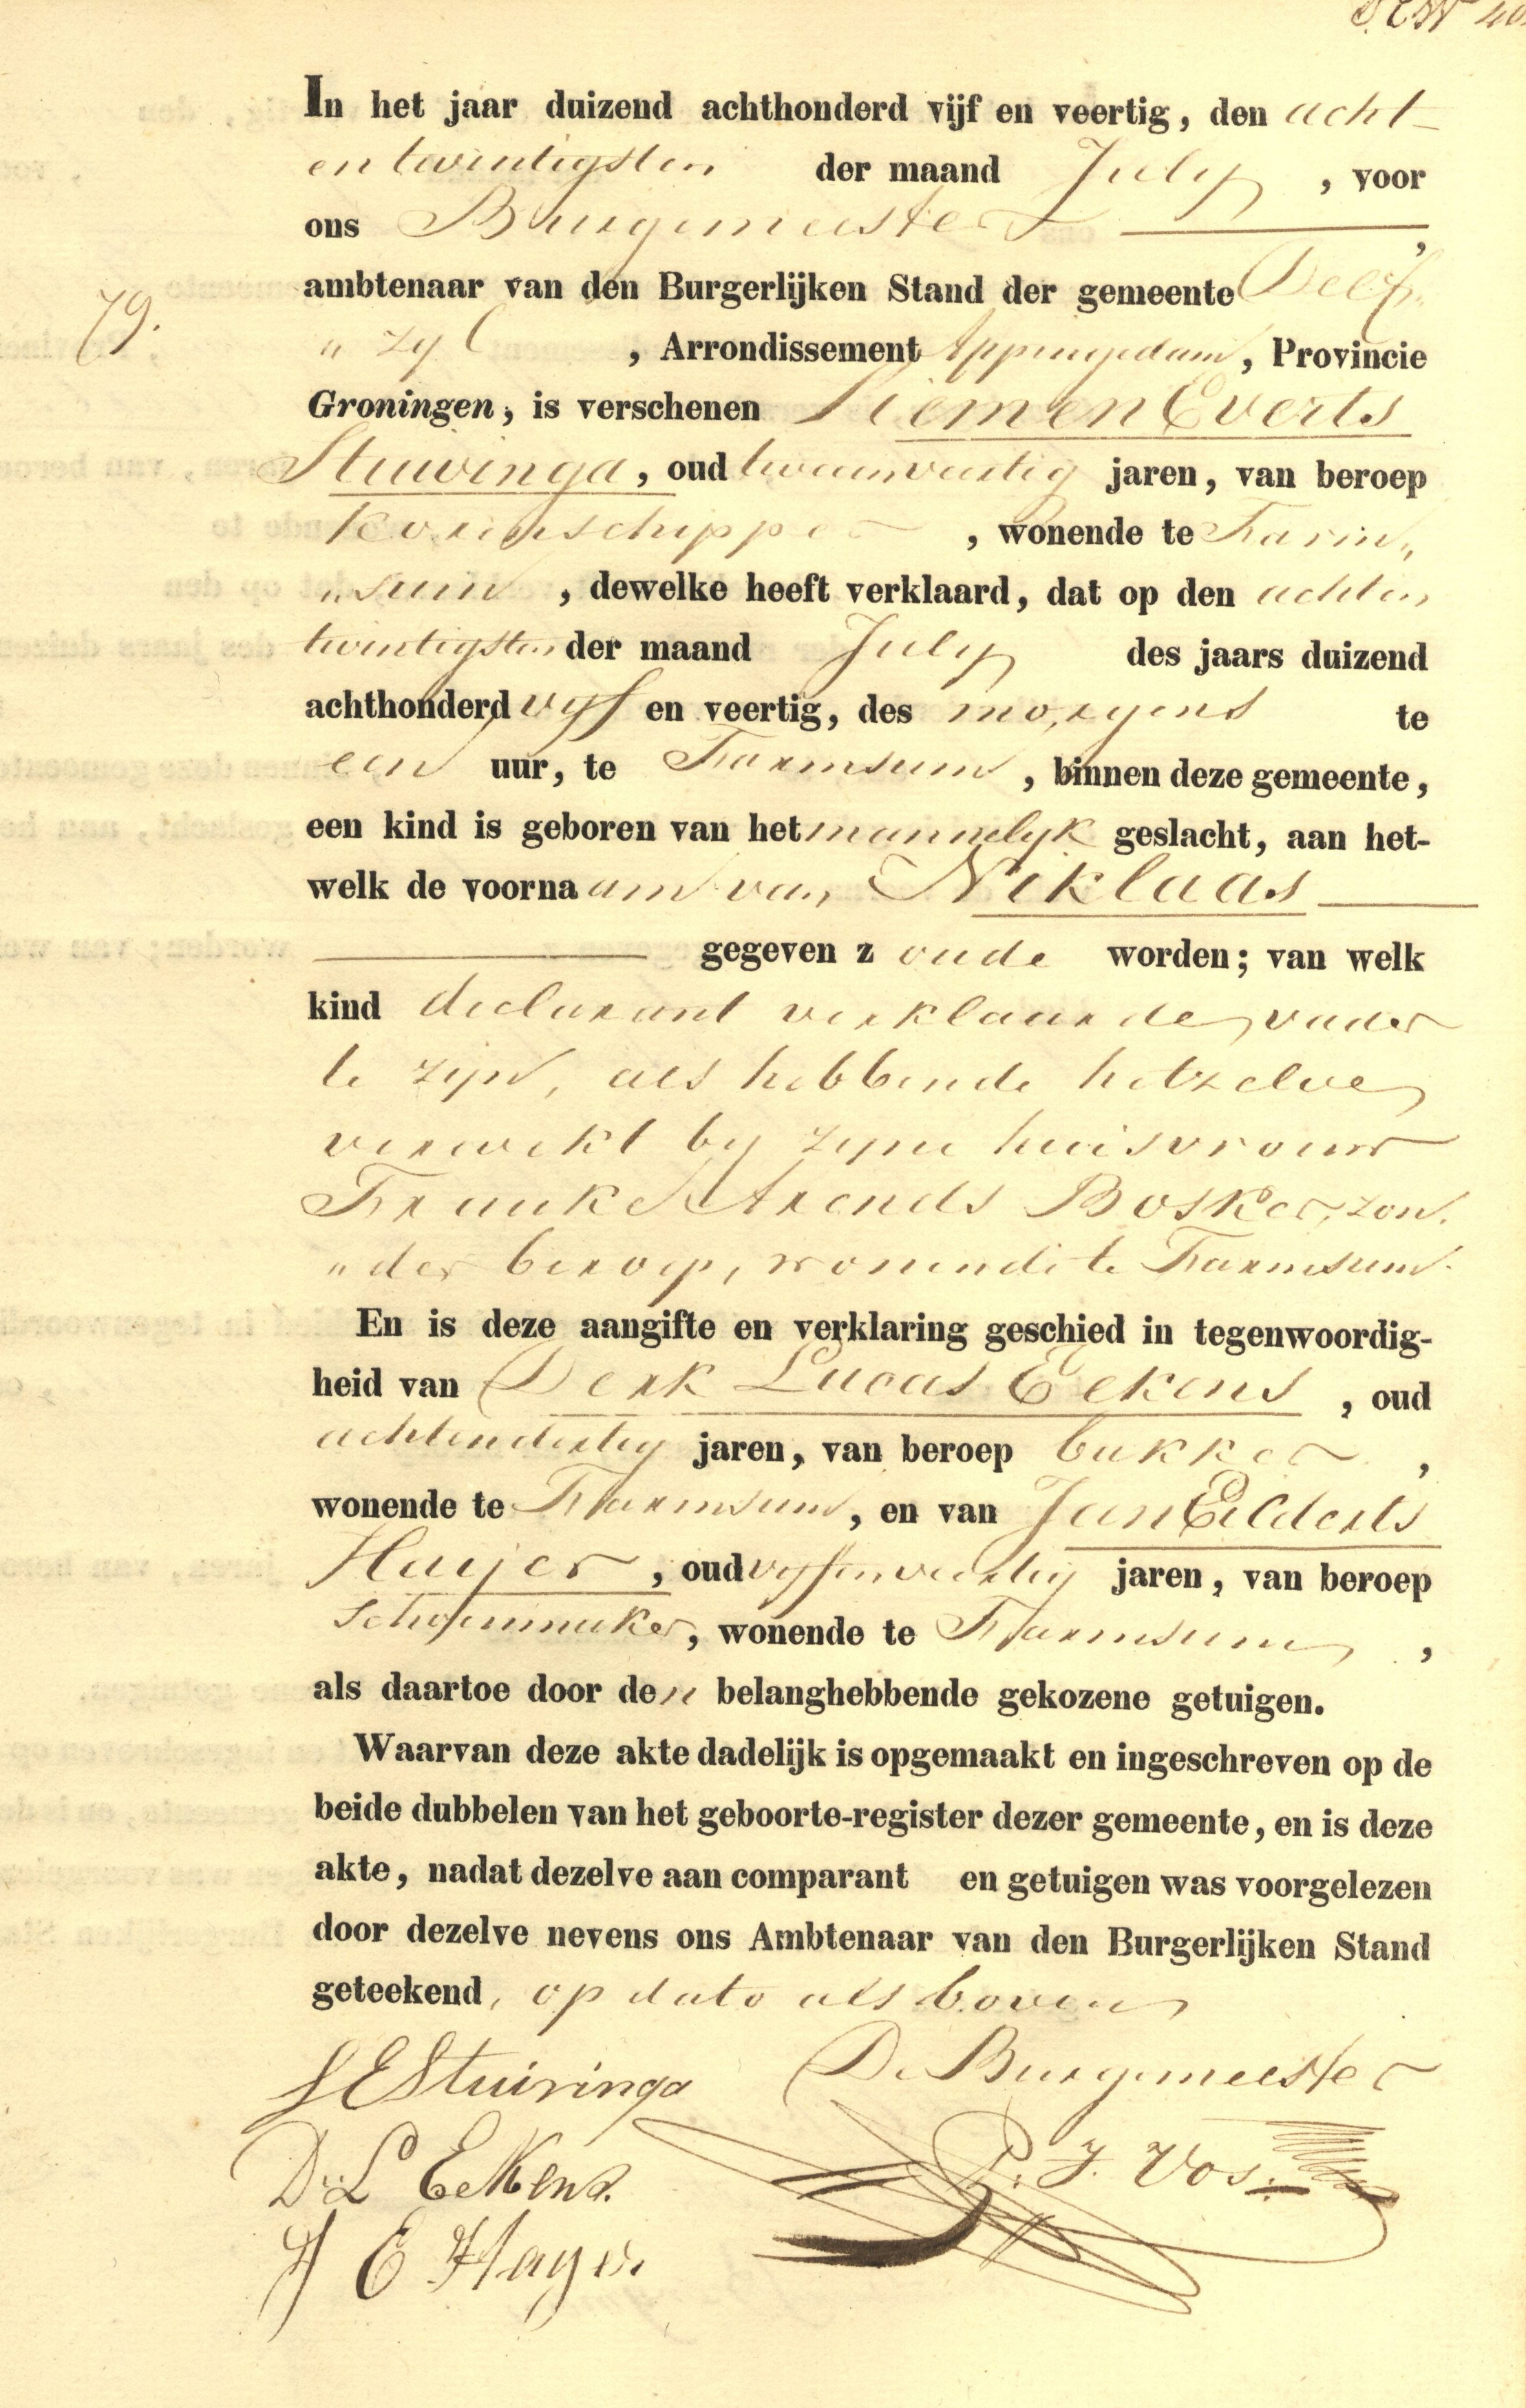 In het jaar duizend achthonderd vijf en veertig, den acht
en twintigsten der maand July, voor
ons Burgemeester,
ambtenaar van den Burgerlijken Stand der gemeente Delf„
79.
„zyl, Arrondissement Appingedam, Provincie
Groningen, is verschenen Siemen Everts
Stuivinga, oud tweeenveertig jaren, van beroep
korenschipper, wonende te Farm„
„sum, dewelke heeft verklaard, dat op den achten
twintigsten der maand July des jaars duizend
achthonderd vyf en veertig, des morgens te
een uur, te Farmsum, binnen deze gemeente,
een kind is geboren van het mannelyk geslacht, aan het-
welk de voornaam van Niklaas
gegeven zoude worden; van welk
kind declarant verklaarde vader
te zijn, als hebbende hetzelve
verwekt by zyne huisvrouw
Frauke Arends Bosker, zon„
„der beroep, wonende te Farmsum.
En is deze aangifte en verklaring geschied in tegenwoordig-
heid van Derk Lucas Eekens, oud
achtendertig jaren, van beroep bakker,
wonende te Farmsum, en van Jan Eilderts
Haijer, oud vyfenveertig jaren, van beroep
schoenmaker, wonende te Farmsum,
als daartoe door den belanghebbende gekozene getuigen.
Waarvan deze akte dadelijk is opgemaakt en ingeschreven op de
beide dubbelen van het geboorte-register dezer gemeente, en is deze
akte, nadat dezelve aan comparant en getuigen was voorgelezen
door dezelve nevens ons Ambtenaar van den Burgerlijken Stand
geteekend, op dato als boven
S E Stuivinga De Burgemeester
D. L Eekens. P. J. Vos.
J E Hayer